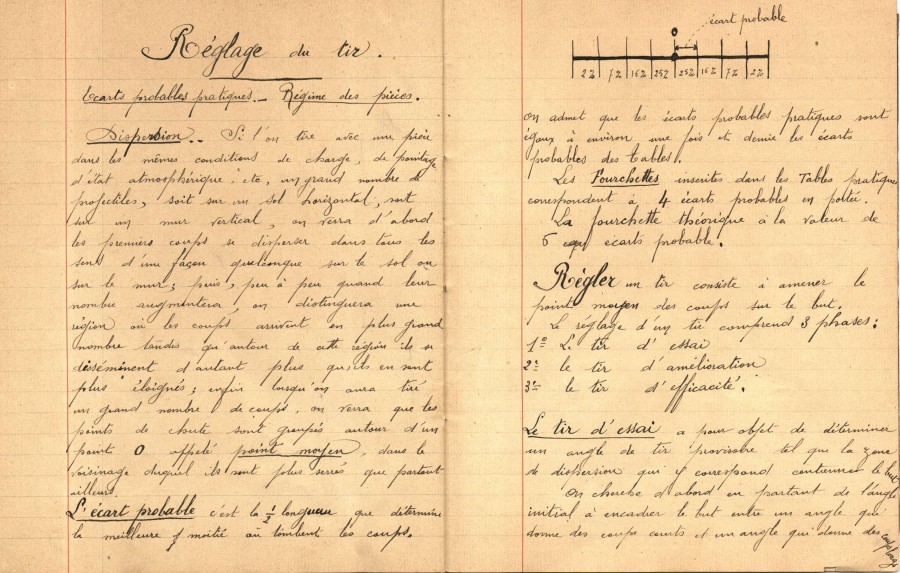 Réglage du tir.
Ecarts probables pratiques. _ Régime des pièces.
Dispersion. _ Si l'on tire avec une pièce
dans les mêmes conditions de charge, de pointage
d'état atmosphérique, etc, un grand nombre de
projectiles, soit sur un sol horizontal, soit
sur un mur vertical, on verra d'abord
les premiers coups se disperser dans tous les
sens d'une façon quelconque sur le sol ou
sur le mur; puis, peu à peu quand leur
nombre augmentera on distinguera une
région où les coups arrivent en plus grand
nombre tandis qu'autour de cette région ils se
disséminent d'autant plus qu'ils en sont
plus éloignés; enfin lorsqu'on aura tiré
un grand nombre de coups, on verra que les
points de chute sont groupés autour d'un
point O appelé point moyen, dans le
voisinage duquel ils sont plus serrés que partout
ailleurs.
L'écart probable c'est la ½ longueur que détermine
la meilleure moitié où tombent les coups.
écart probable
O
2% 7% 16% 25% 25% 16% 7% 2%
on admet que les écarts probables pratiques sont
égaux à environ une fois et demie les écarts
probables des Tables.
Les Fourchettes inscrites dans les Tables pratiques
correspondent à 4 écarts probables en portée.
La fourchette théorique à la valeur de
6 écarts probable.
Régler un tir consiste à amener le
point moyen des coups sur le but.
Le réglage d'un tir comprend 3 phases:
1º Le tir d'essai
2º le tir d'amélioration
3º le tir d'efficacité.
Le tir d'essai a pour objet de déterminer
un angle de tir provisoire tel que la zone
de dispersion qui y correspond contienne le but
On cherche d'abord en partant de l'angle
initial à encadrer le but entre un angle qui
donne des coups courts et un angle qui donne des
coups longs